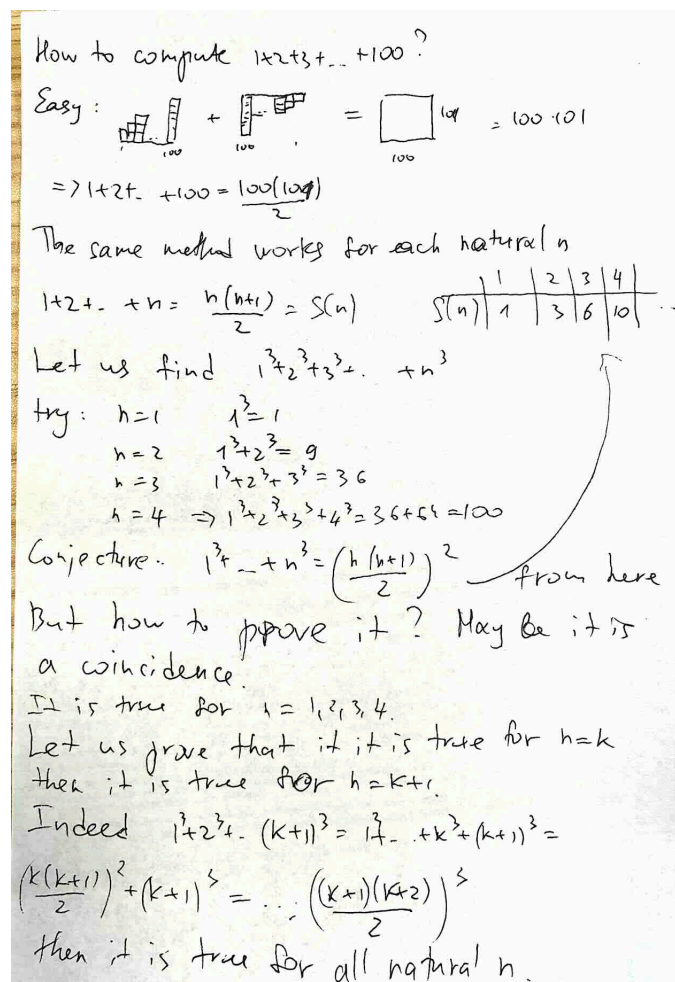 How to compute 1+2+3+... +100?
Easy: + = 101 = 100·101
100 100 100
=> 1+2+.. +100 = 100(101)/2
The same method works for each natural n
1+2+.. +n = n(n+1)/2 = S(n)
1 2 3 4
S(n) 1 3 6 10 ...
Let us find 1³+2³+3³+.. +n³
try: n=1 1³=1
n=2 1³+2³=9
n=3 1³+2³+3³=36
n=4 => 1³+2³+3³+4³=36+64=100
Conjecture.. 1³+...+n³=(n(n+1)/2)² from here
But how to prove it? May be it is
a coincidence.
It is true for n=1,2,3,4.
Let us prove that if it is true for n=k
then it is true for n=k+1.
Indeed 1³+2³+.. (k+1)³ = 1³+.. +k³+(k+1)³ =
(k(k+1)/2)²+(k+1)³ = ... ((k+1)(k+2)/2)³
then it is true for all natural n.